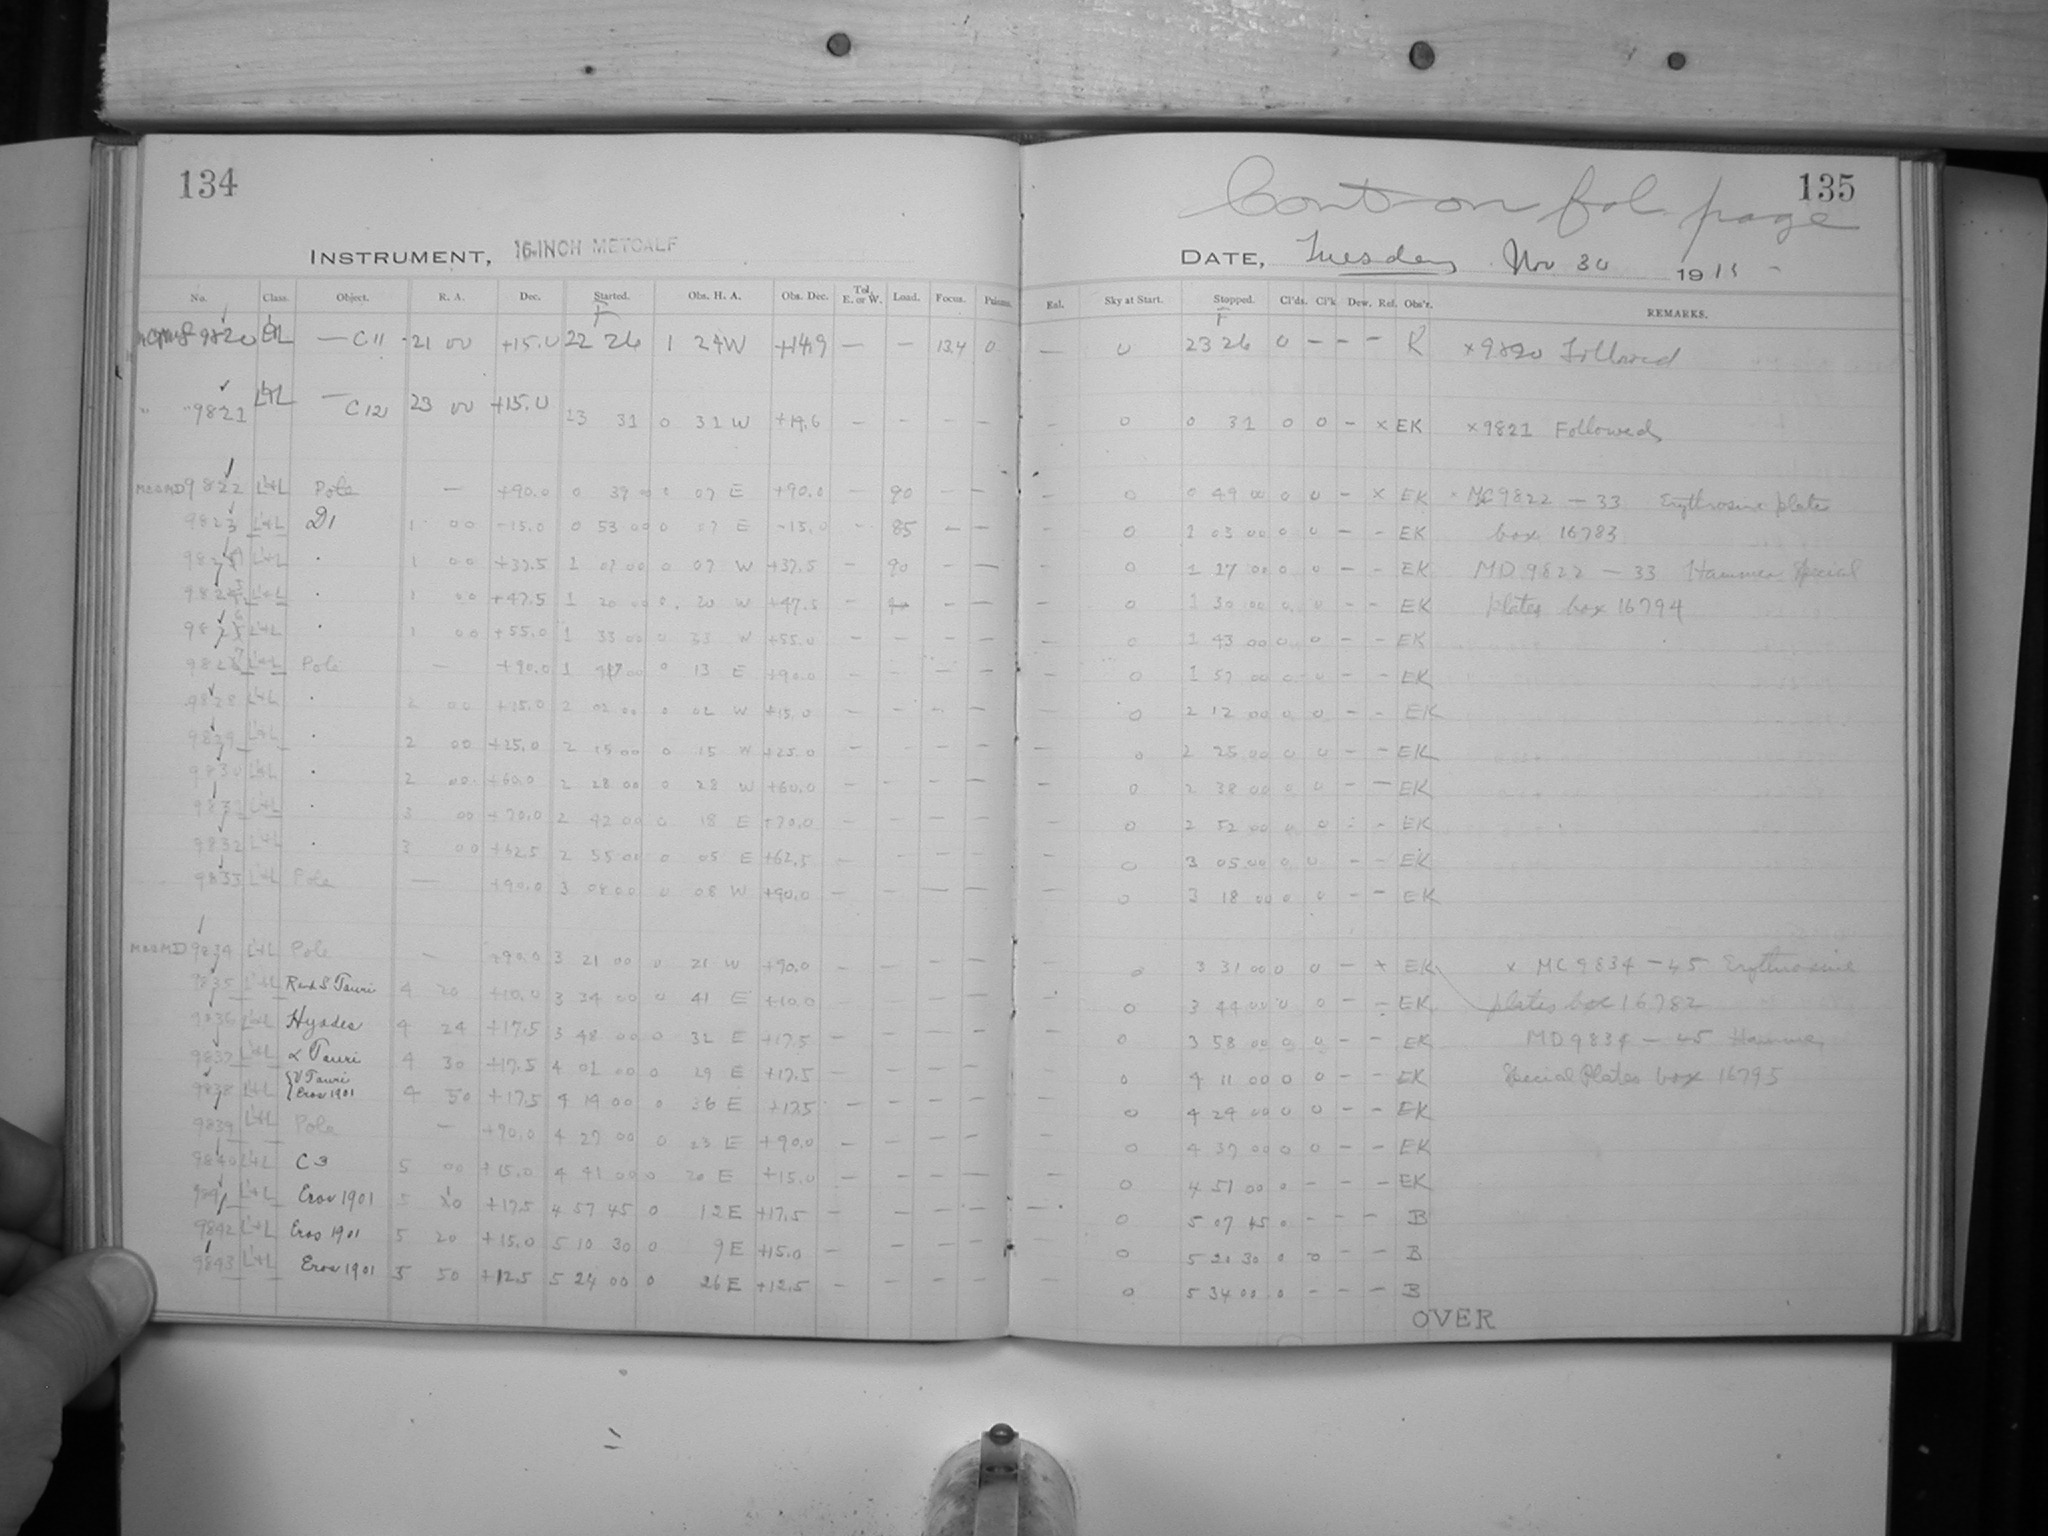 134
135
Cont on fol. page
INSTRUMENT, 16-INCH METCALF
DATE, Tuesday Nov 30 1915
No. Class. Object. R. A. Dec. Started. Obs. H. A. Obs. Dec. Tel. E. or W. Load. Focus. Eal. Sky at Start. Stopped. Cl'ds. Cl'k Dew. Ref. Obs'r. REMARKS.
9820 L+L — C11 21 00 +15.0 22 26 1 24W +14.9 — — 13.4 0 — 0 23 26 0 — — — R × 9820 Followed
" " 9821 L+L — C12 23 00 +15.0 23 31 0 31 W +14.6 — — — — — 0 0 31 0 0 — × EK × 9821 Followed
9822 L+L Pole — +90.0 0 39 00 0 07 E +90.0 — 90 — — — 0 0 49 00 0 0 — × EK × MC 9822 — 33 Erythrosine plates
9823 L+L D1 1 00 -15.0 0 53 00 0 07 E -15.0 — 85 — — — 0 1 03 00 0 0 — — EK box 16783
L+L " 1 00 +37.5 1 07 00 0 07 W +37.5 — 90 — — — 0 1 17 00 0 0 — — EK MD 9822 — 33 Hammer Special
L+L " 1 00 +47.5 1 20 00 0 20 W +47.5 — — — — 0 1 30 00 0 0 — — EK plates box 16794
L+L " 1 00 +55.0 1 33 00 0 33 W +55.0 — — — — — 0 1 43 00 0 0 — — EK
L+L Pole — +90.0 1 47 00 0 13 E +90.0 — — — — — 0 1 57 00 0 0 — — EK
9828 L+L " 2 00 +15.0 2 02 00 0 02 W +15.0 — — — — — 0 2 12 00 0 0 — — EK
9829 L+L " 2 00 +25.0 2 15 00 0 15 W +25.0 — — — — — 0 2 25 00 0 0 — — EK
9830 L+L " 2 00 +60.0 2 28 00 0 28 W +60.0 — — — — — 0 2 38 00 0 0 — — EK
9831 L+L " 3 00 +70.0 2 42 00 0 18 E +70.0 — — — — — 0 2 52 00 0 0 — — EK
9832 L+L " 3 00 +62.5 2 55 00 0 05 E +62.5 — — — — — 0 3 05 00 0 0 — — EK
9833 L+L Pole — +90.0 3 08 00 0 08 W +90.0 — — — — — 0 3 18 00 0 0 — — EK
9834 L+L Pole — +90.0 3 21 00 0 21 W +90.0 — — — — — 0 3 31 00 0 0 — × EK × MC 9834 — 45 Erythrosine
9835 L+L R and S Tauri 4 20 +10.0 3 34 00 0 41 E +10.0 — — — — — 0 3 44 00 0 0 — — EK plates box 16782
9836 L+L Hyades 4 24 +17.5 3 48 00 0 32 E +17.5 — — — — — 0 3 58 00 0 0 — — EK MD 9834 — 45 Hammer
9837 L+L α Tauri 4 30 +17.5 4 01 00 0 29 E +17.5 — — — — — 0 4 11 00 0 0 — — EK Special Plates box 16795
9838 L+L { V Tauri Eros 1901 4 50 +17.5 4 14 00 0 36 E +17.5 — — — — — 0 4 24 00 0 0 — — EK
9839 L+L Pole — +90.0 4 27 00 0 23 E +90.0 — — — — — 0 4 37 00 0 0 — — EK
9840 L+L C3 5 00 +15.0 4 41 00 0 20 E +15.0 — — — — — 0 4 51 00 0 — — — EK
9841 L+L Eros 1901 5 10 +17.5 4 57 45 0 12 E +17.5 — — — — — 0 5 07 45 0 — — — B
9842 L+L Eros 1901 5 20 +15.0 5 10 30 0 9 E +15.0 — — — — — 0 5 20 30 0 0 — — B
9843 L+L Eros 1901 5 50 +12.5 5 24 00 0 26 E +12.5 — — — — — 0 5 34 00 0 — — — B
OVER